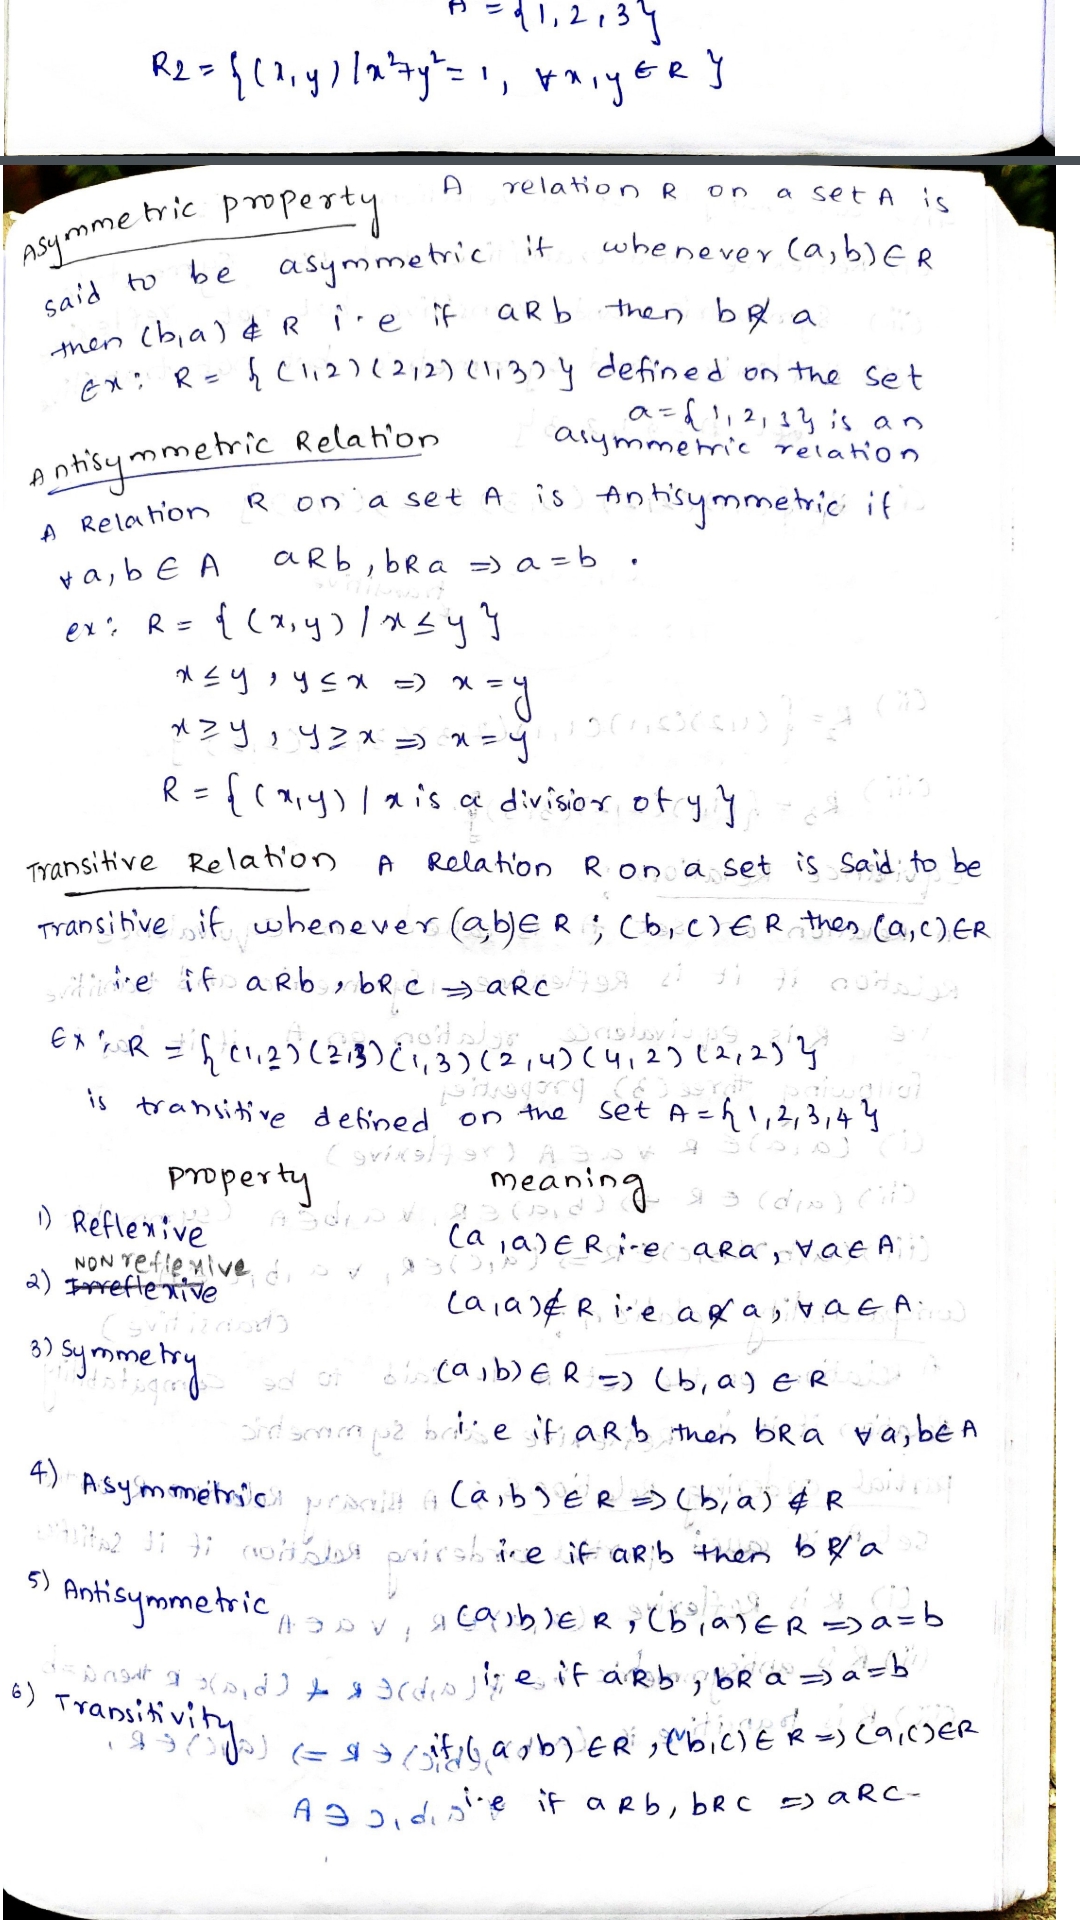 A = {1, 2, 3}
R2 = {(x, y) / x²+y² = 1, ∀ x, y ∈ R }
Asymmetric property A relation R on a set A is
said to be asymmetric if whenever (a, b) ∈ R
then (b, a) ∉ R i.e if aRb then bR̸a
Ex: R = {(1,2) (2,2) (1,3)} defined on the set
a = {1, 2, 3} is an
asymmetric relation
Antisymmetric Relation
A Relation R on a set A is Antisymmetric if
∀ a, b ∈ A aRb, bRa ⇒ a = b .
ex: R = { (x, y) / x ≤ y }
x ≤ y, y ≤ x ⇒ x = y
x ≥ y, y ≥ x ⇒ x = y
R = { (x, y) | x is a divisior of y }
Transitive Relation A Relation R on a set is said to be
Transitive if whenever (a,b) ∈ R ; (b, c) ∈ R then (a, c) ∈ R
i.e if aRb, bRc ⇒ aRc
Ex: R = { (1,2) (2,3) (1,3) (2,4) (4,2) (2,2) }
is transitive defined on the set A = {1, 2, 3, 4}
property meaning
1) Reflexive (a, a) ∈ R i.e aRa, ∀ a ∈ A
NON reflexive
2) Irreflexive (a, a) ∉ R i.e aR̸a, ∀ a ∈ A
3) Symmetry (a, b) ∈ R ⇒ (b, a) ∈ R
i.e if aRb then bRa ∀ a, b ∈ A
4) Asymmetric (a, b) ∈ R ⇒ (b, a) ∉ R
i.e if aRb then bR̸a
5) Antisymmetric (a, b) ∈ R, (b, a) ∈ R ⇒ a = b
i.e if aRb, bRa ⇒ a = b
6) Transitivity if (a, b) ∈ R, (b, c) ∈ R ⇒ (a, c) ∈ R
i.e if aRb, bRc ⇒ aRc